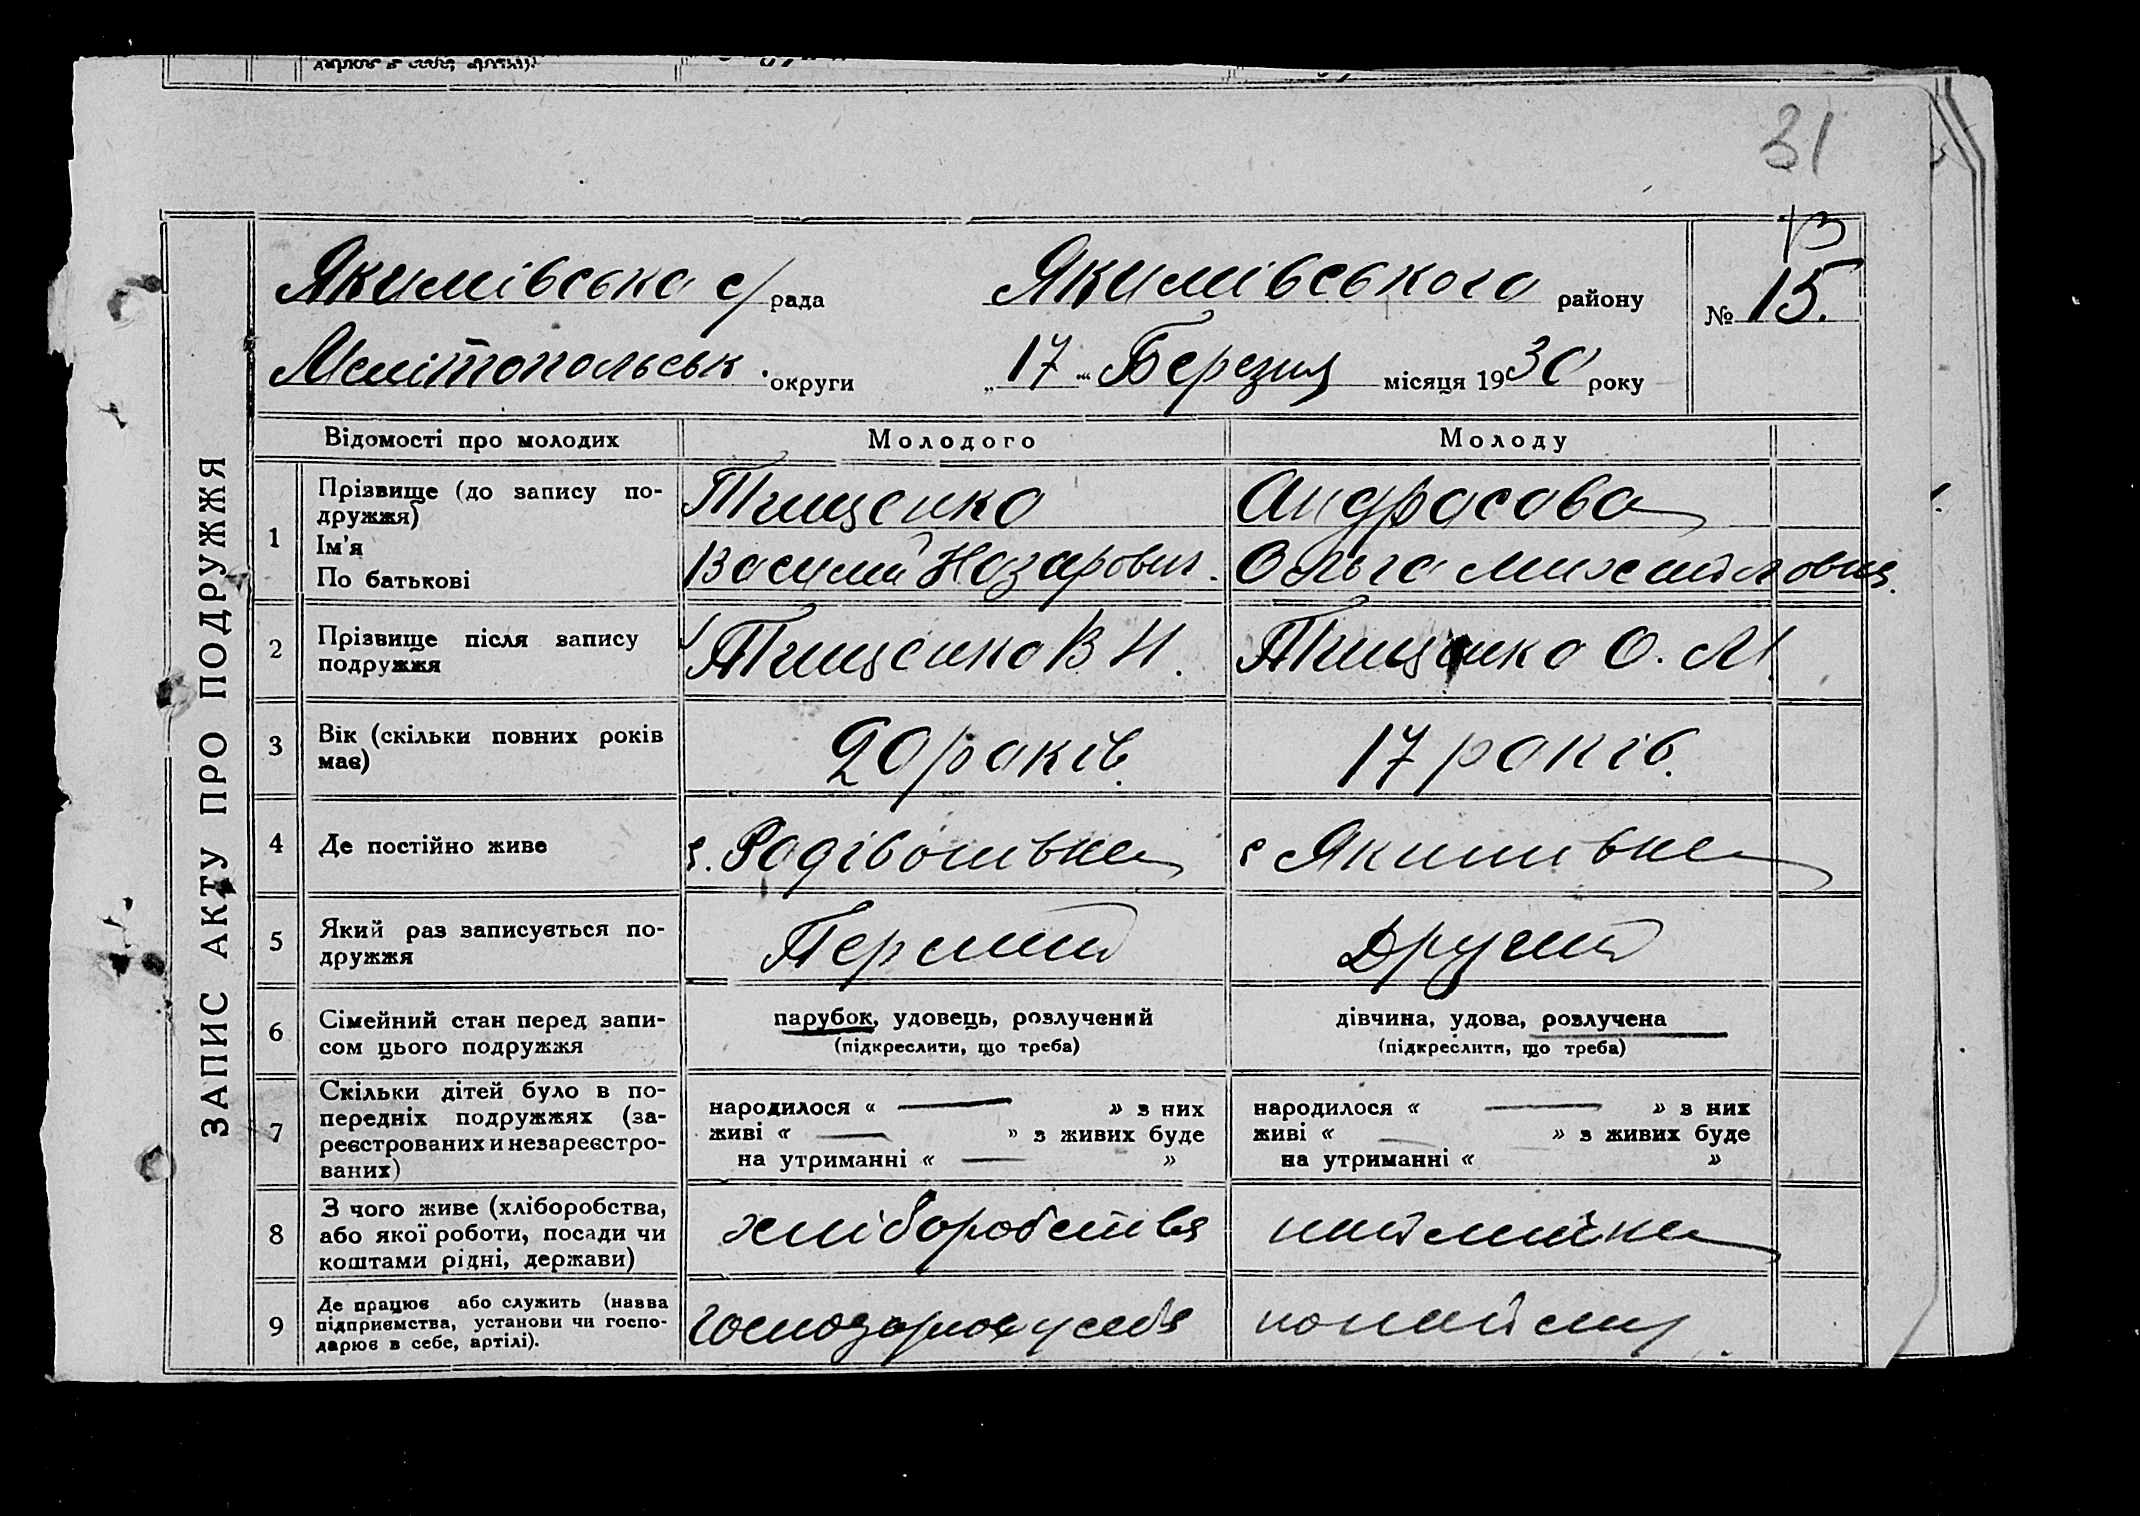 31
13
Якимівська с/рада Якимівського району № 15.
Мелітопольськ. округи „17" Березня місяця 1930 року
ЗАПИС АКТУ ПРО ПОДРУЖЖЯ
Відомості про молодих Молодого Молоду
1 Прізвище (до запису по- Тищенко Андрасова
дружжя)
Ім'я Василий Назарович. Ольга Михайловна.
По батькові
2 Прізвище після запису Тищенко В Н. Тищенко О. М.
подружжя
3 Вік (скільки повних років 20 років. 17 років.
має)
4 Де постійно живе с. Радівонівка с Якимівка
5 Який раз записується по- Перший Другий
дружжя
6 Сімейний стан перед запи- парубок, удовець, розлучений дівчина, удова, розлучена
сом цього подружжя (підкреслити, що треба) (підкреслити, що треба)
7 Скільки дітей було в по- народилося « — » з них народилося « — » з них
передніх подружжях (за- живі « — » з живих буде живі « — » з живих буде
реєстрованих и незареєстро- на утриманні « — » на утриманні « »
ваних)
8 З чого живе (хліборобства, хліборобства наймичка
або якої роботи, посади чи
коштами рідні, держави)
9 Де працює або служить (назва по найму.
підприємства, установи чи госпо-
дарює в себе, артілі).